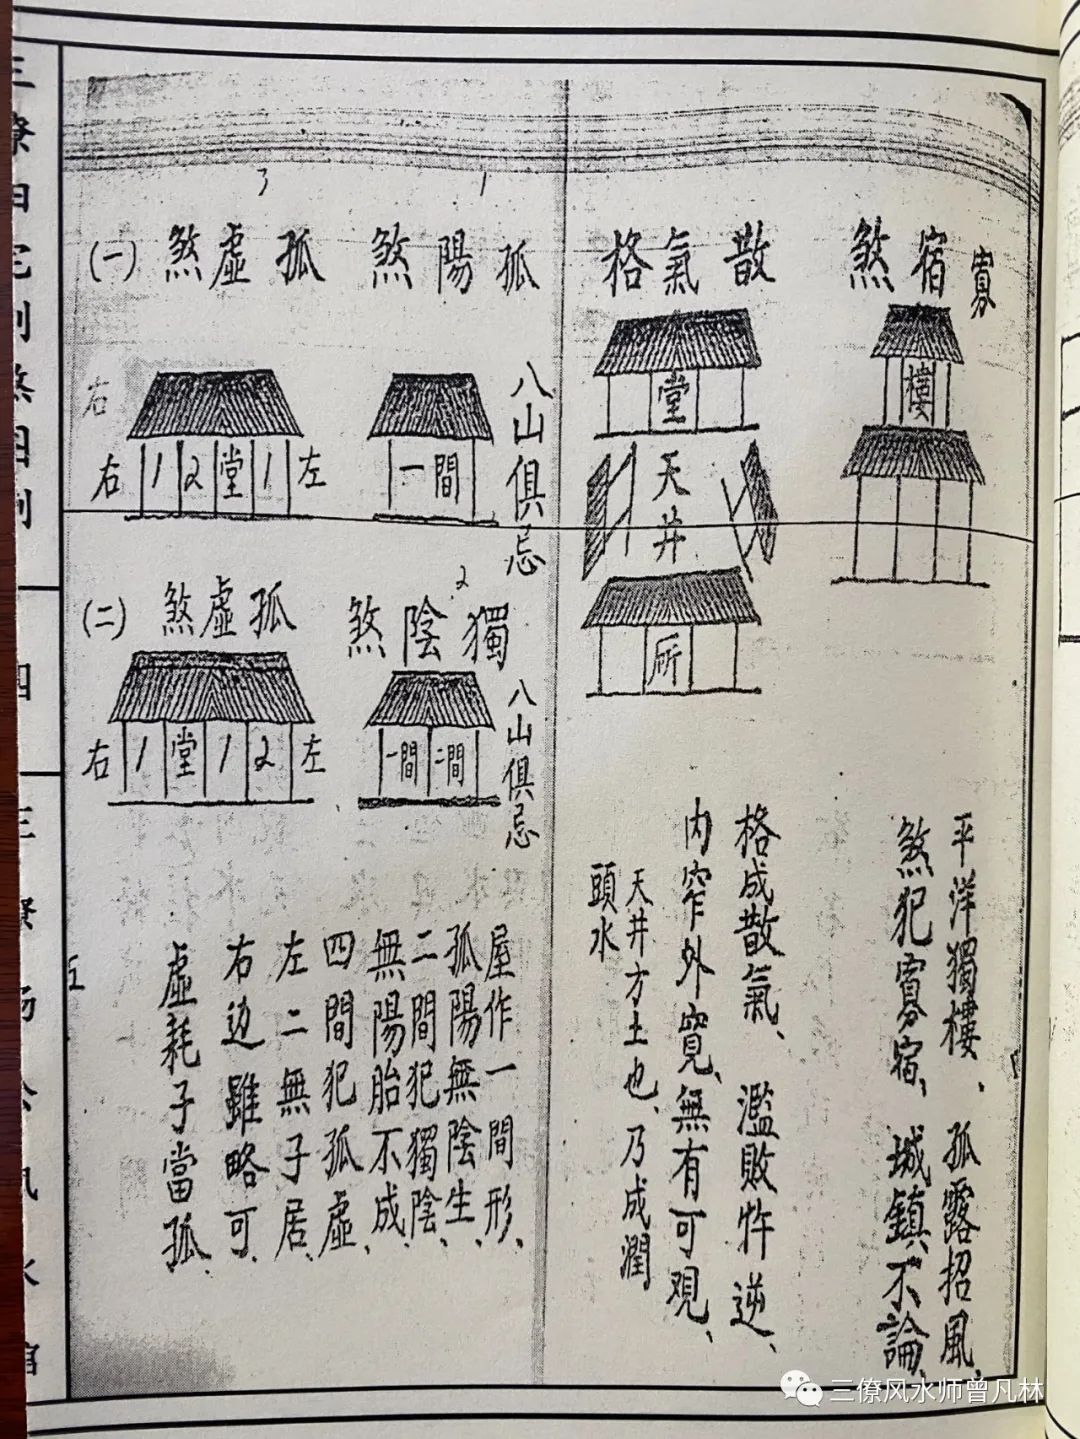 寡宿煞
樓
平洋獨樓、孤露招風、
煞犯寡宿、城鎮不論、
散氣格
堂
天井
所
格成散氣、濫敗忤逆、
內窄外寬、無有可觀、
天井方土也、乃成潤
頭水
1
孤陽煞
一間
八山俱忌
3
孤虛煞
(一)
右
右 1 2 堂 1 左
2
獨陰煞
一間 二間
八山俱忌
孤虛煞
(二)
右 1 堂 1 2 左
屋作一間形、
孤陽無陰生、
二間犯獨陰、
無陽胎不成、
四間犯孤虛、
左二無子居、
右边雖略可、
虛耗子當孤、
三僚风水师曾凡林